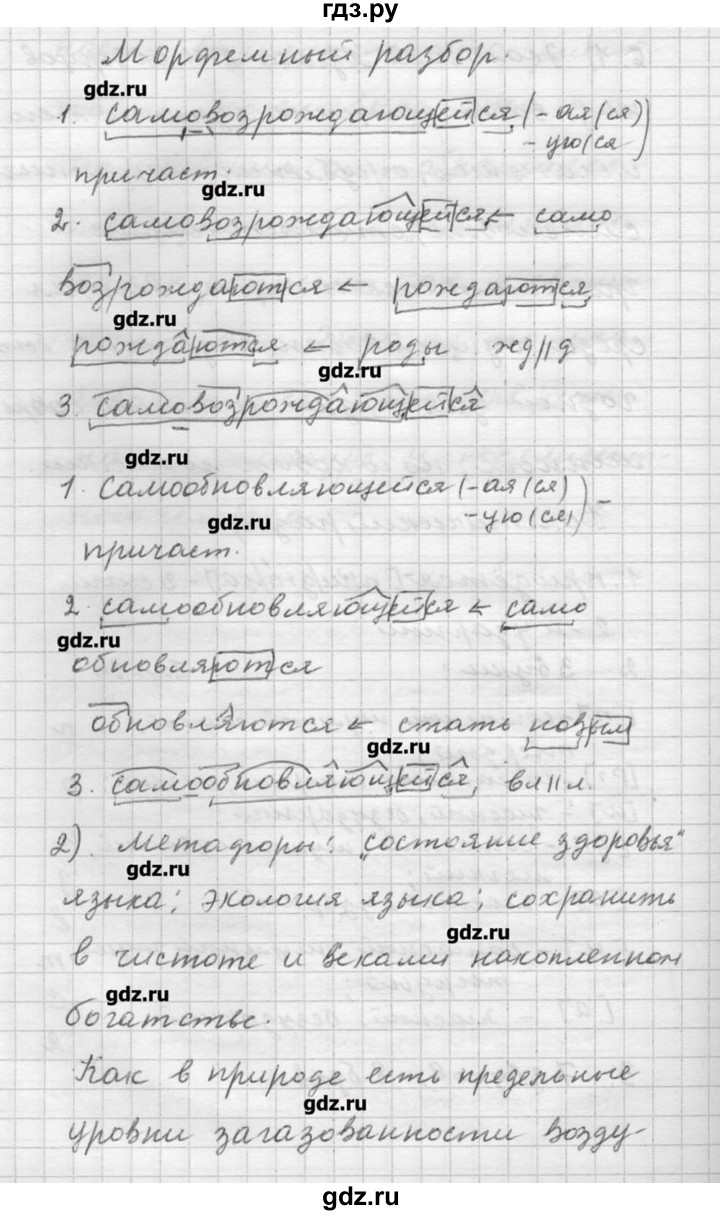 гдз.ру
Морфемный разбор.
gdz.ru
1. самовозрождающейся (-ая(ся)
-ую(ся)
причаст.
gdz.ru
2. самовозрождающейся ← само
возрождаются ← рождаются
gdz.ru
рождаются ← роды жд||д
gdz.ru
3. самовозрождающейся
gdz.ru
1. Самообновляющейся (-ая(ся)
-ую(ся)) -
gdz.ru
причаст.
2. самообновляющейся ← само
gdz.ru
обновляются
обновляются ← стать новым
gdz.ru
3. самообновляющейся, вл||л.
2). Метафоры: „состояние здоровья"
gdz.ru
языка; экология языка; сохранить
gdz.ru
в чистоте и веками накопленном
gdz.ru
богатстве.
Как в природе есть предельные
gdz.ru
уровни загазованности возду-
gdz.ru